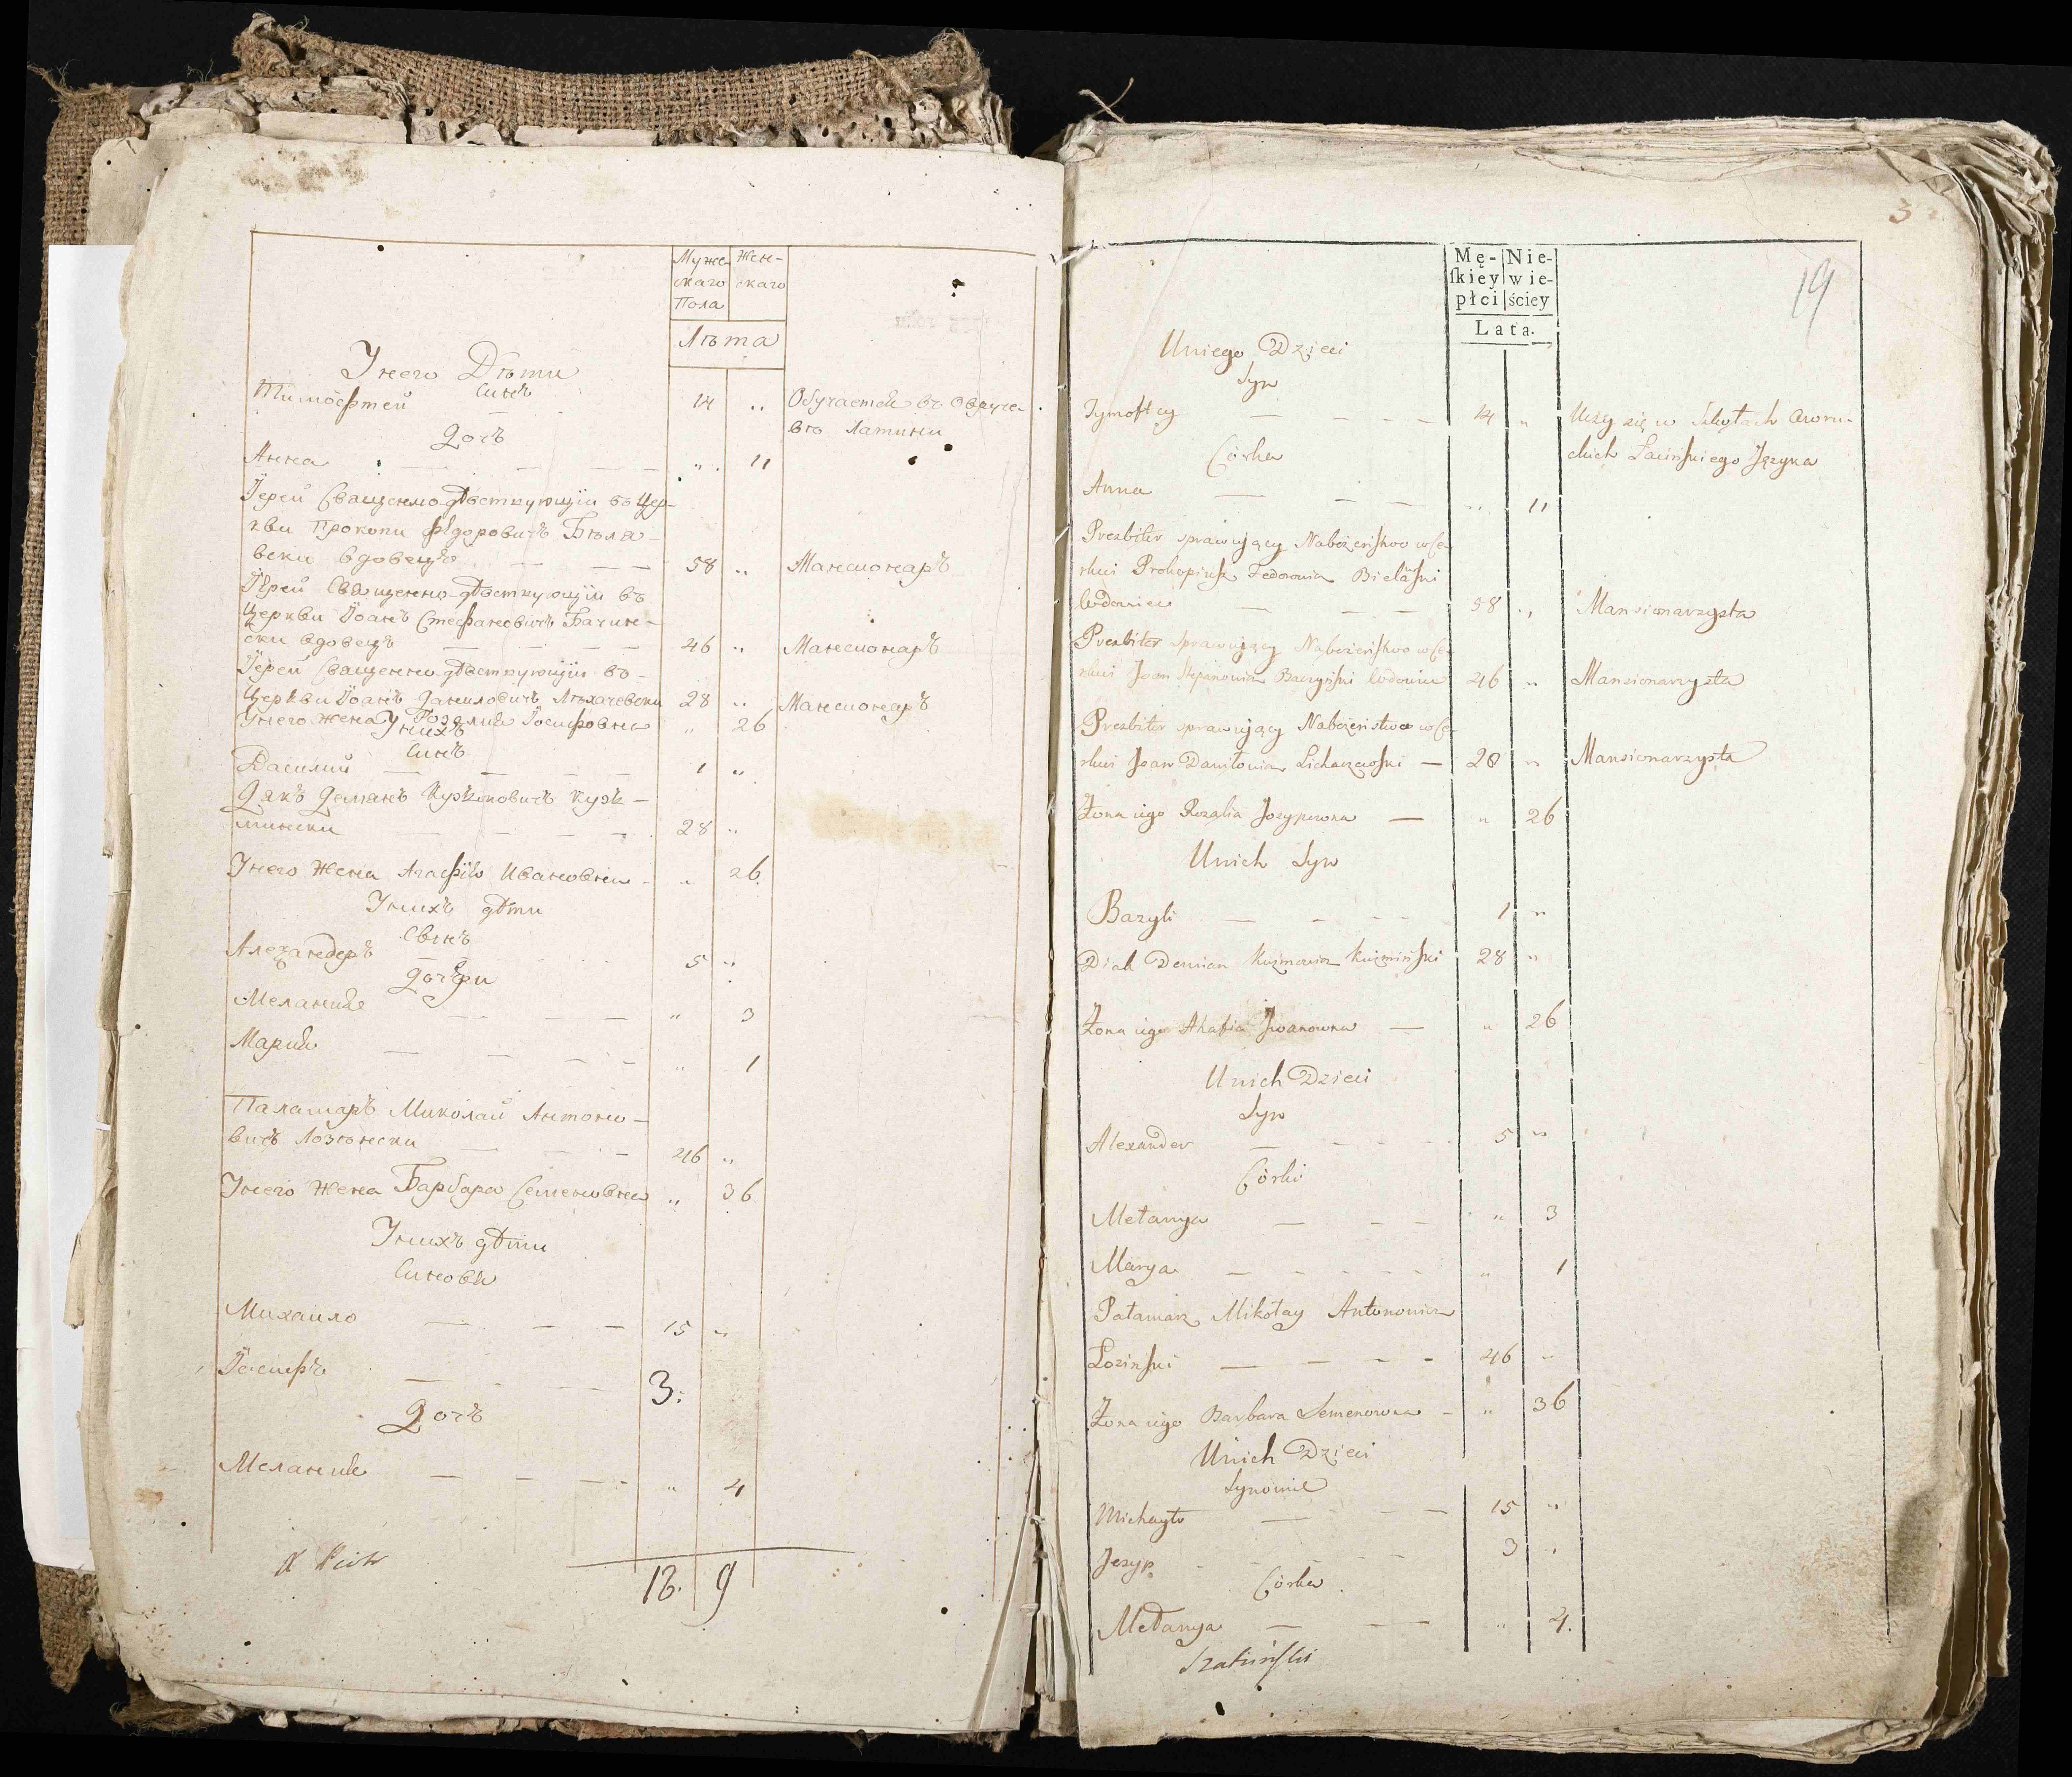 Муже-
скаго
Пола
Жен-
скаго
Лѣта
Унего Дѣти
Синъ
Тимофтей 14 „ Обучается въ Овруче-
въ Латини
Дочъ
Анна „ 11
Їерей Священнодѣствующїи въ Цер-
кви Прокопи Фѣдоровичъ Бѣла-
вски вдовецъ 58 „ Мансионаръ
Їерей Священно-дѣствующїи въ
Церкви Їоанъ Стефановичъ Бачин-
ски вдовецъ 46 „ Мансионаръ
Їерей Священно дѣствующїи въ-
Церкви Їоанъ Даниловичъ Лѣхачевски 28 „ Мансионаръ
Унего жена Розалия Їосифовна „ 26
Унихъ
Синъ
Василий 1 „
Дякъ Демянъ Кузмовичъ Кузъ-
мински 28 „
Унего Жена Агафїя Ивановна „ 26
Унихъ дѣти
Свiнъ
Алеѯандеръ 5 „
дочери
Мелания „ 3
Мария „ 1
Паламаръ Миколай Антоно-
вичъ Лозѣнски 46 „
Унего Жена Барбара Семеновна „ 36
Унихъ дѣти
Синови
Михаило 15 „
Їосифъ 3.
Дочъ
Мелания „ 4
18. 9
3
19
Mę-
ſkiey
płci
Nie-
wie-
ściey
Lata.
Uniego Dzieci
Syn
Tymoftey 14 „ Uczy się w Szkołach Owru-
ckich Łacińskiego Języka
Córka
Anna „ 11
Prezbiter sprawujący Nabożeństwo w Ce-
rkwi Prokopiusz Fedorowicz Bielański
Wdowiec 58 „ Mansionarzysta
Prezbiter sprawujący Nabożeństwo w Ce-
rkwi Joan Stepanowicz Baczyński Wdowiec 46 „ Mansionarzysta
Prezbiter sprawujący Nabożeństwo w Ce-
rkwi Joan Daniłowicz Lichaczewski 28 „ Mansionarzysta
Żona iego Rozalia Jozypowna „ 26
Unich Syn
Bazyli 1 „
Diak Demian Kuźmowicz Kuźmiński 28 „
Żona iego Ahafia Jwanowna „ 26
Unich Dzieci
Syn
Alexander 5 „
Córki
Mełanya „ 3
Marya „ 1
Pałamarz Mikołay Antonowicz
Łoziński 46 „
Żona iego Barbara Semenowna „ 36
Unich Dzieci
Synowie
Michayło 15 „
Jozyp 3 „
Córka
Mełanya „ 4.